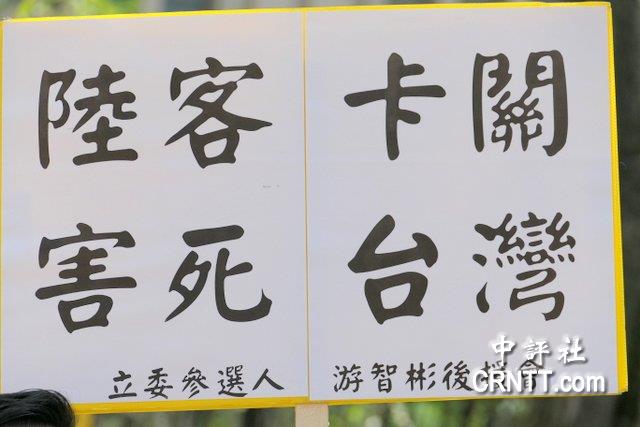 陸客卡關
害死台灣
立委參選人 游智彬後援會
中評社
CRNTT.com